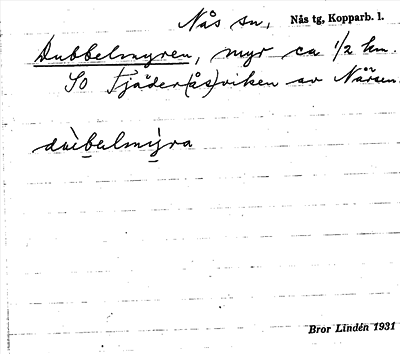 Nås sn, Nås tg, Kopparb. l.
Dubbelmyren, myr ca 1/2 km.
SO Fjäder(ås)viken av Nåsen.
dùbelmỳra
Bror Lindén 1931